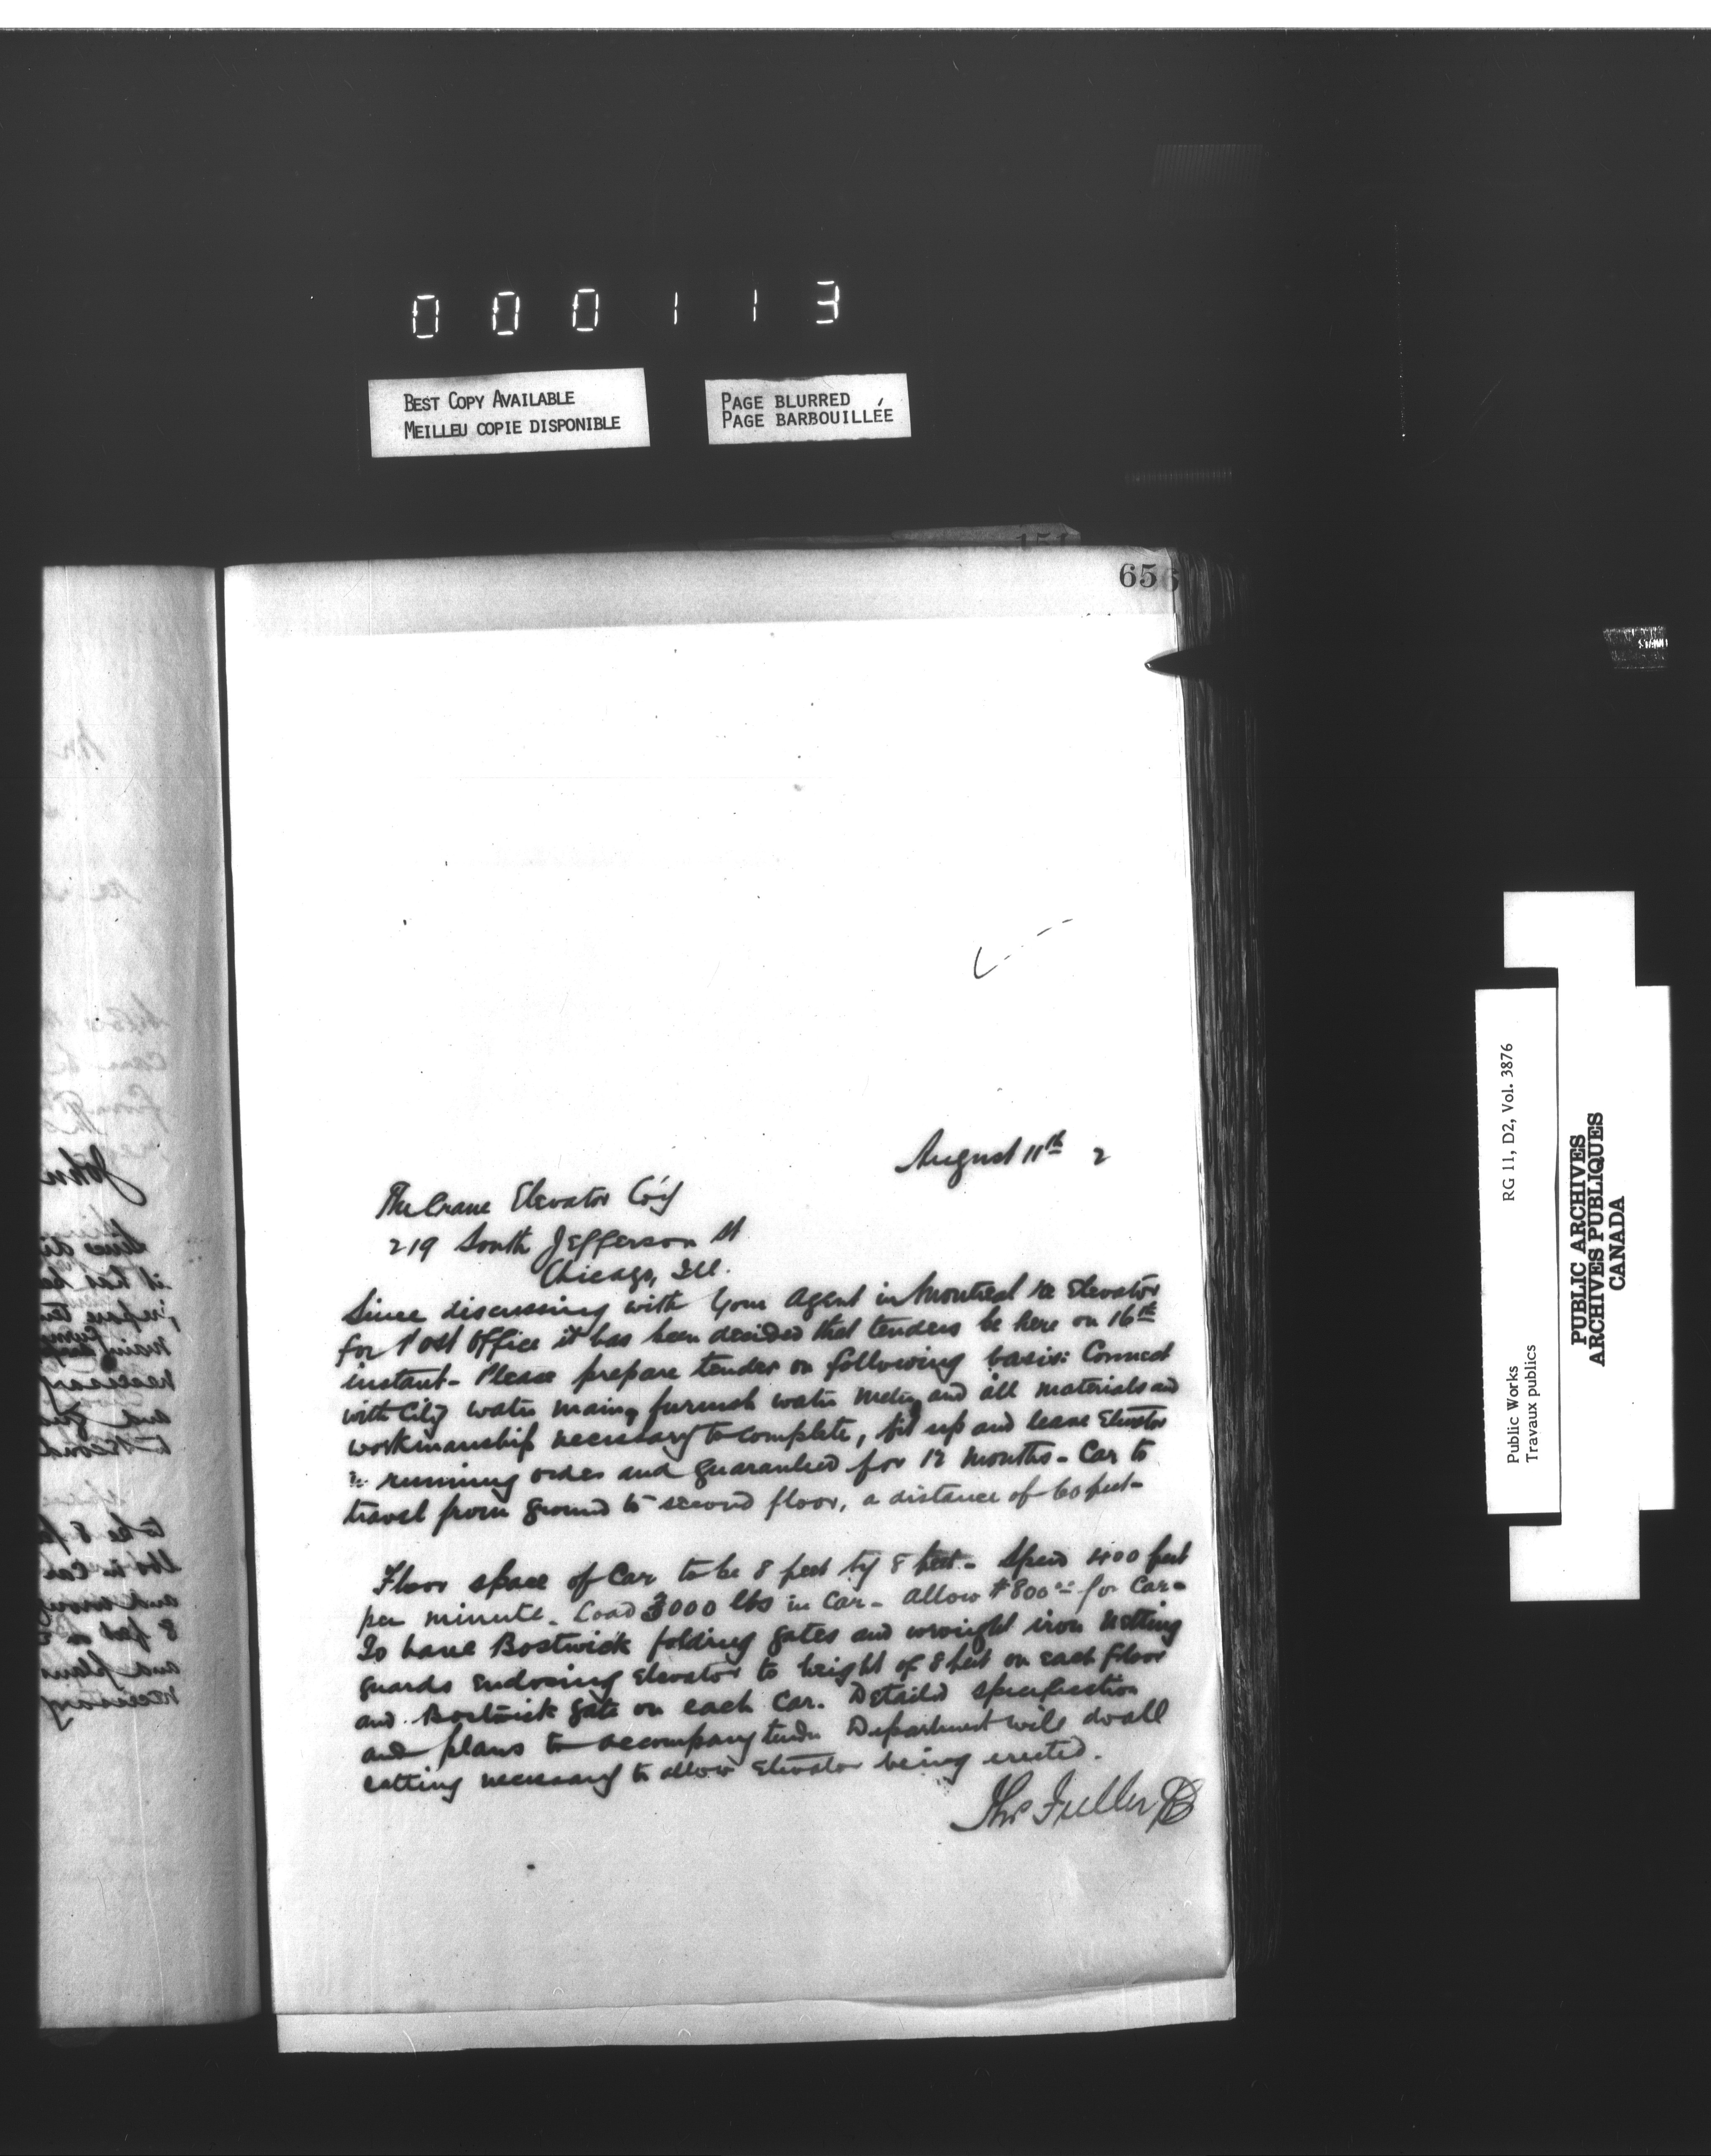 000113
BEST COPY AVAILABLE
MEILLEU COPIE DISPONIBLE
PAGE BLURRED
PAGE BARBOUILLÉE
656
August 11th 2
The Crane Elevator Co'y
219 South Jefferson St
Chicago, Ill.
Since discussing with your Agent in Montreal re Elevator
for Post Office it has been decided that tenders be here on 16th
instant - Please prepare tender on following basis: Connect
with City water main, furnish water meter, and all materials and
workmanship necessary to complete, fit up and leave Elevator
in running order and guaranteed for 12 months - Car to
travel from ground to second floor, a distance of 60 feet -
Floor space of Car to be 8 feet by 8 feet - Speed 400 feet
per minute. Load 3000 lbs in Car - allow $800.00 for Car -
To have Bostwick folding gates and wrought iron netting
guards enclosing Elevator to height of 8 feet on each floor
and Bostwick gate on each Car. Detailed specification
and plans to accompany tender Department will do all
cutting necessary to allow Elevator being erected.
Thos Fuller
RG 11, D2, Vol. 3876
Public Works
Travaux publics
PUBLIC ARCHIVES
ARCHIVES PUBLIQUES
CANADA